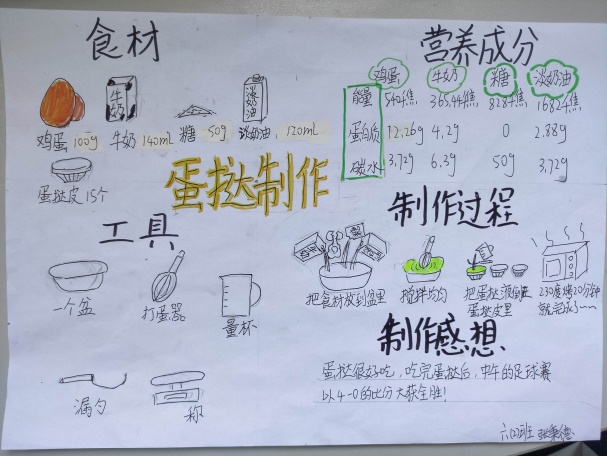 食材
营养成分
鸡蛋 牛奶 糖 淡奶油
能量 540千焦 365.4千焦 828千焦 1682千焦
蛋白质 12.26g 4.2g 0 2.88g
碳水 3.72g 6.3g 50g 3.72g
牛奶
淡奶油
鸡蛋 100g 牛奶 140mL 糖 50g 淡奶油 120mL
蛋挞皮 15个
蛋挞制作
工具
一个盆 打蛋器 量杯
漏勺 称
制作过程
把食材放到盆里 搅拌均匀
把蛋挞液倒进
蛋挞皮里
230度烤20分钟
就完成了~~
制作感想
蛋挞很好吃,吃完蛋挞后,中午的足球赛
以4-0的比分大获全胜!